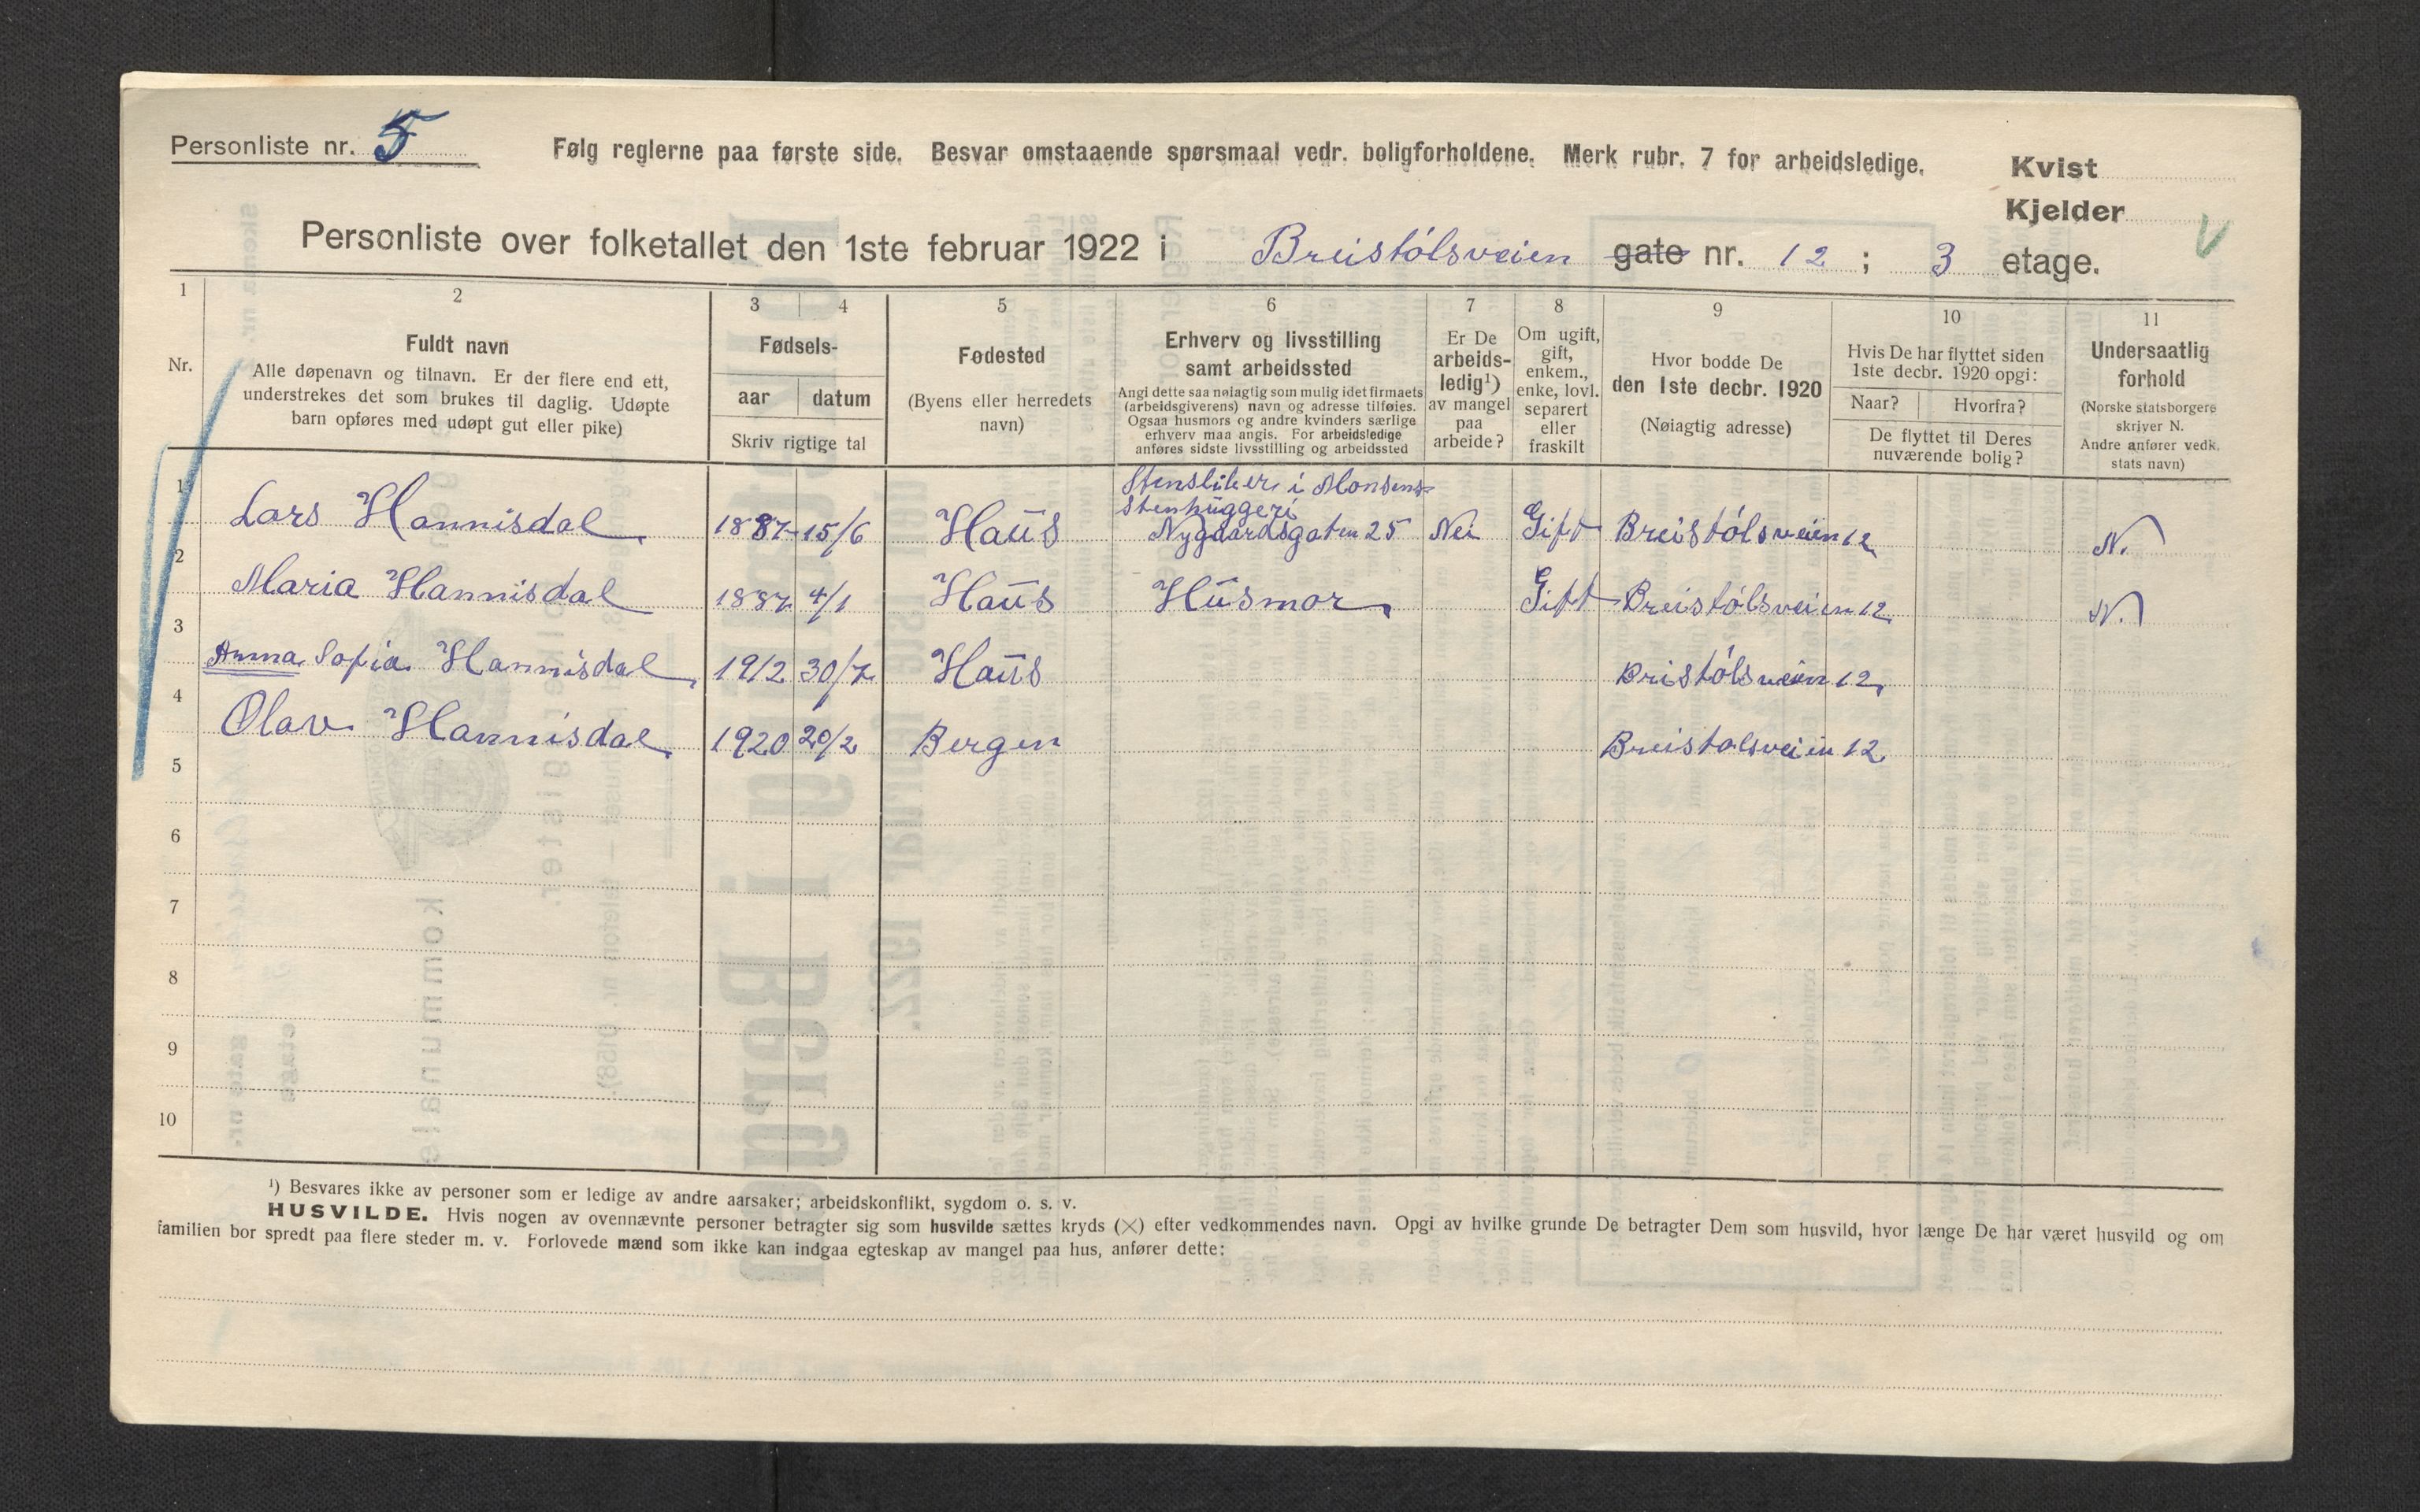 Personliste nr. 5
Følg reglerne paa første side. Besvar omstaaende spørsmaal vedr. boligforholdene. Merk rubr. 7 for arbeidsledige.
Kvist
Kjelder
Personliste over folketallet den 1ste februar 1922 i Breistólsveien gate nr. 12 ; 3 etage.
1 2 3 4 5 6 7 8 9 10 11
Nr.
Fuldt navn
Alle døpenavn og tilnavn. Er der flere end ett,
understrekes det som brukes til daglig. Udøpte
barn opføres med udøpt gut eller pike)
Fødsels-
aar datum
Skriv rigtige tal
Fødested
(Byens eller herredets
navn)
Erhverv og livsstilling
samt arbeidssted
Angi dette saa nøiagtig som mulig idet firmaets
(arbeidsgiverens) navn og adresse tilføies.
Ogsaa husmors og andre kvinders særlige
erhverv maa angis. For arbeidsledige
anføres sidste livsstilling og arbeidssted
Er De
arbeids-
ledig¹)
av mangel
paa
arbeide?
Om ugift,
gift,
enkem.,
enke, lovl.
separert
eller
fraskilt
Hvor bodde De
den 1ste decbr. 1920
(Nøiagtig adresse)
Hvis De har flyttet siden
1ste decbr. 1920 opgi:
Naar? Hvorfra?
De flyttet til Deres
nuværende bolig?
Undersaatlig
forhold
(Norske statsborgere
skriver N.
Andre anfører vedk.
stats navn)
1 Lars Hannisdal 1887 15/6 Haus Stensliber i Monsens Stenhuggeri Nygaardsgaten 25 Nei Gift Breistólsveien 12 N.
2 Maria Hannisdal 1887 4/1 Haus Husmor Gift Breistólsveien 12 N.
3 Anna Sofia Hannisdal 1912 30/7 Haus Bristólsveien 12
4 Olav Hannisdal 1920 20/2 Bergen Breistolsveien 12
5
6
7
8
9
10
¹) Besvares ikke av personer som er ledige av andre aarsaker; arbeidskonflikt, sygdom o. s. v.
HUSVILDE. Hvis nogen av ovennævnte personer betragter sig som husvilde sættes kryds (×) efter vedkommendes navn. Opgi av hvilke grunde De betragter Dem som husvild, hvor længe De har været husvild og om
familien bor spredt paa flere steder m. v. Forlovede mænd som ikke kan indgaa egteskap av mangel paa hus, anfører dette: